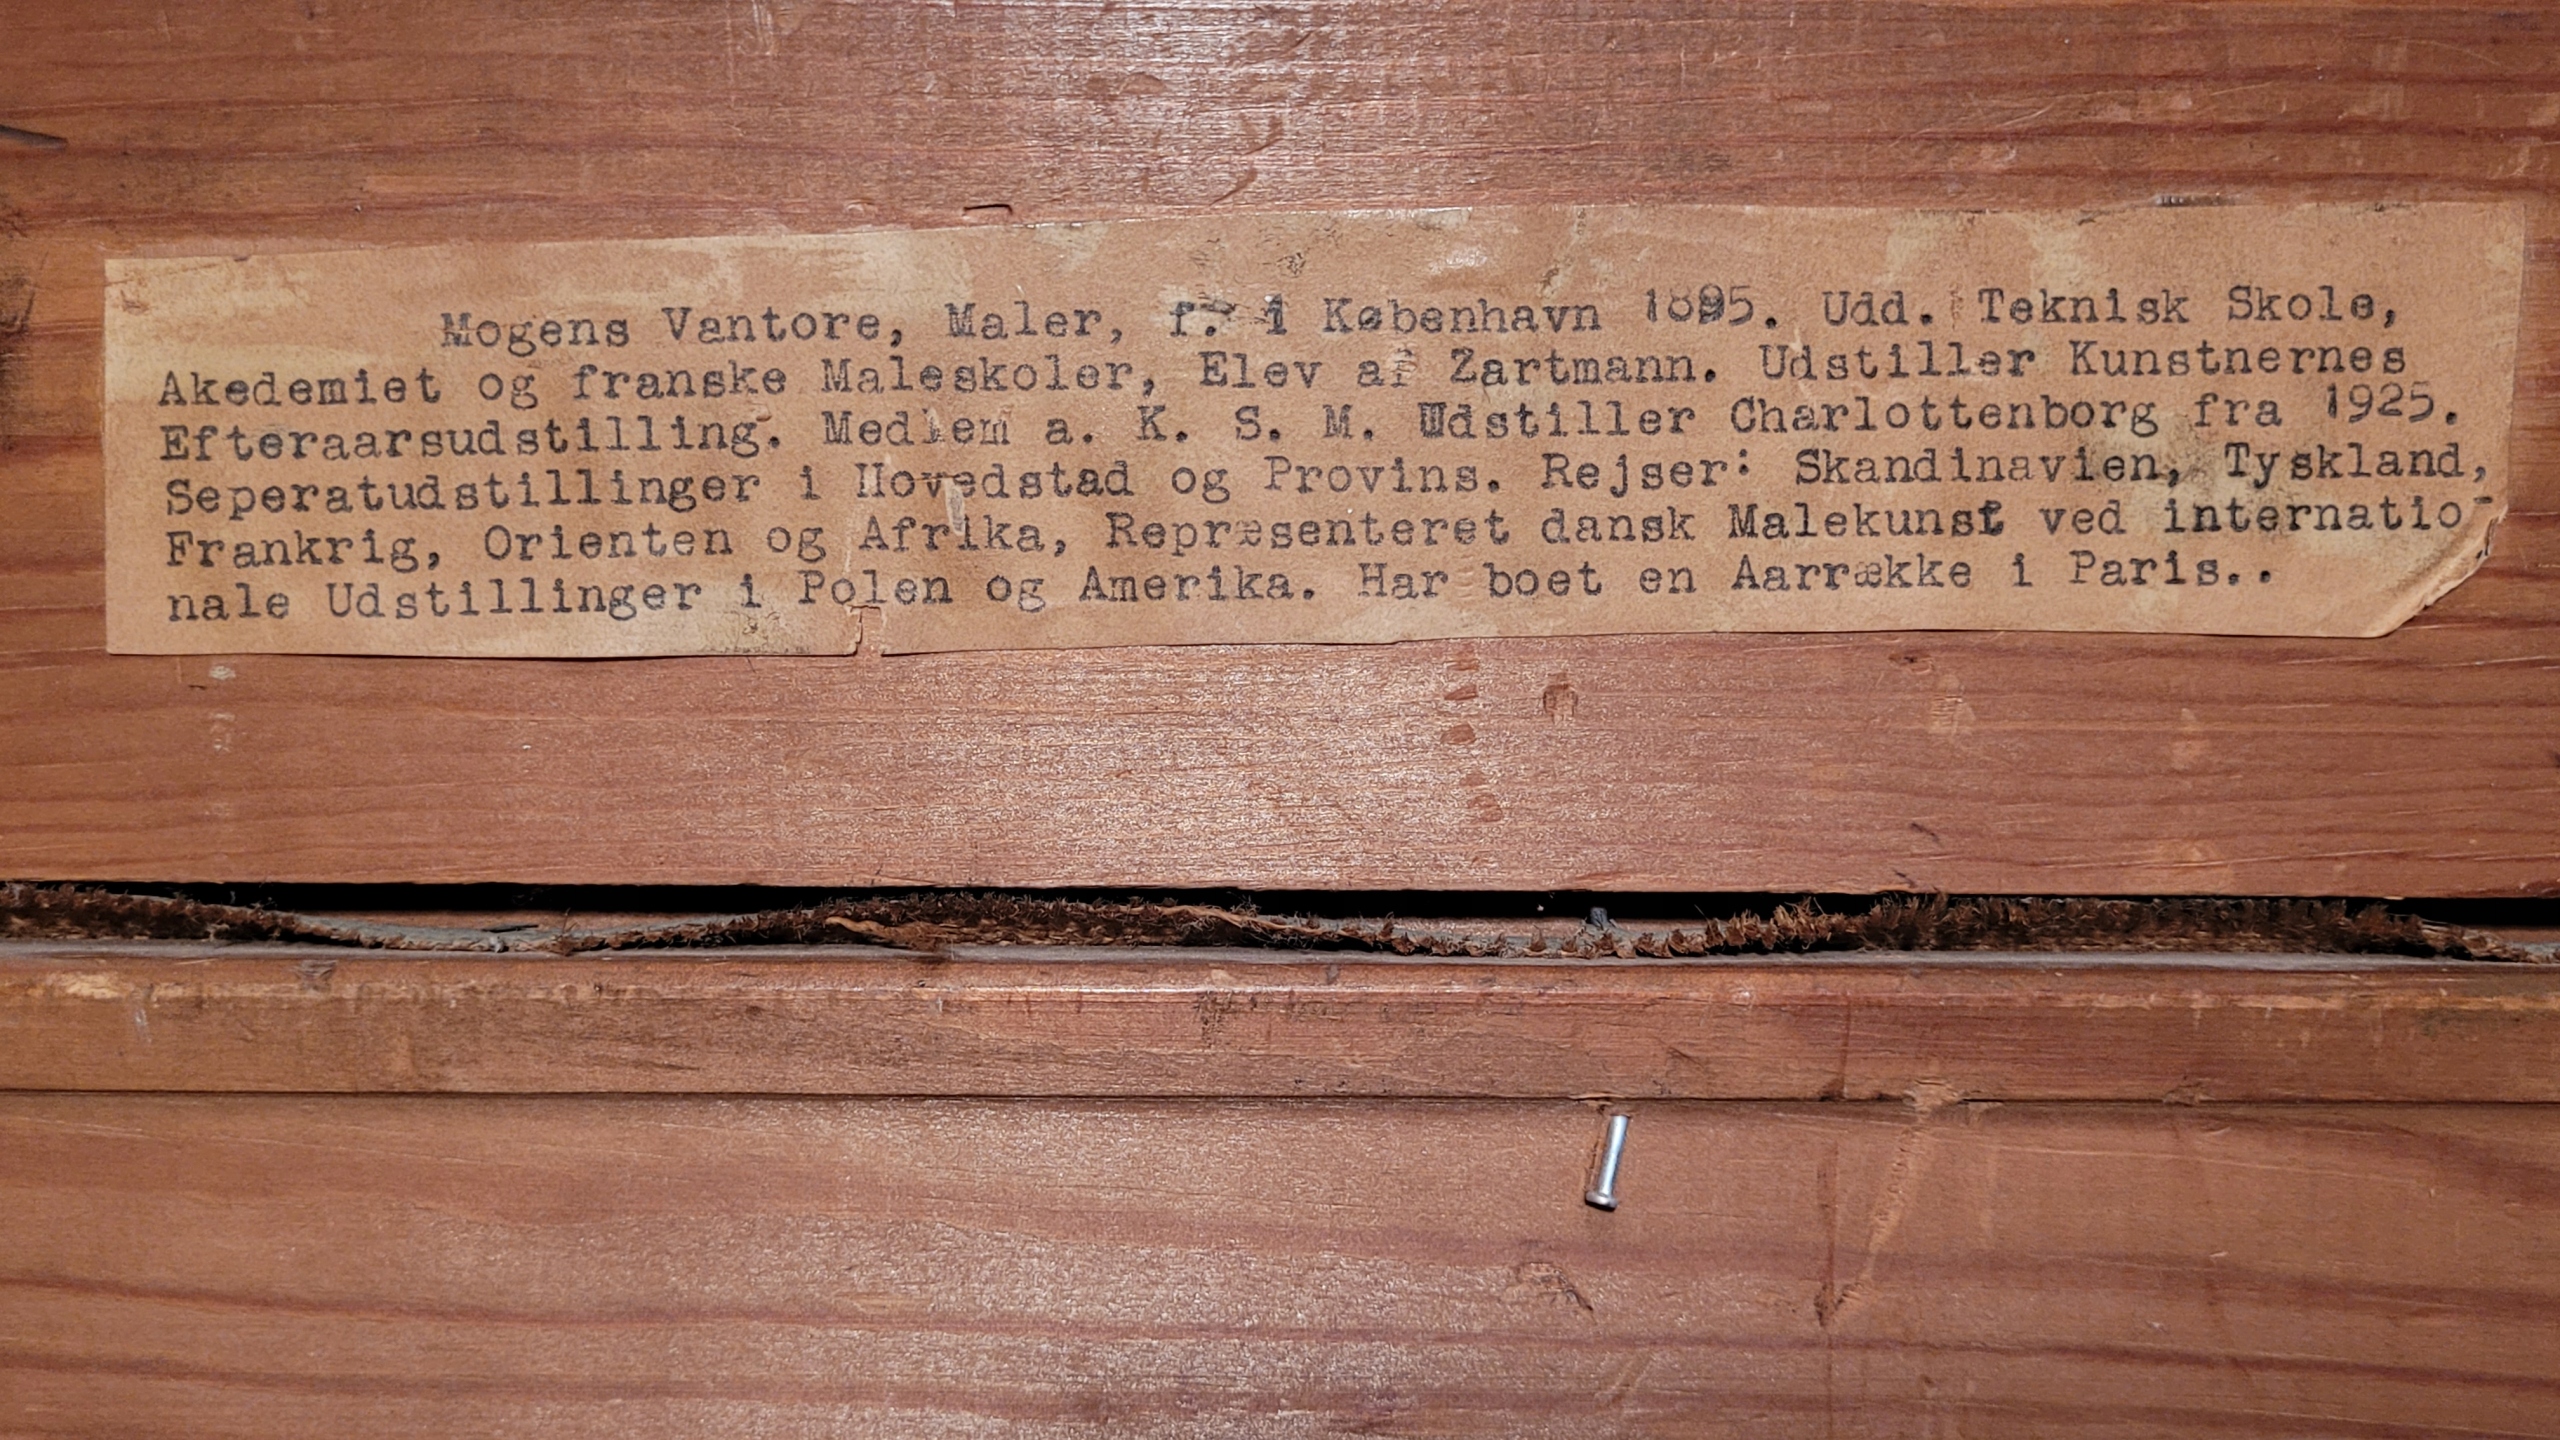 Mogens Vantore, Maler, f. i København 1895. Udd. Teknisk Skole,
Akedemiet og franske Maleskoler, Elev af Zartmann. Udstiller Kunstnernes
Efteraarsudstilling. Medlem a. K. S. M. Udstiller Charlottenborg fra 1925.
Seperatudstillinger i Hovedstad og Provins. Rejser: Skandinavien, Tyskland,
Frankrig, Orienten og Afrika, Repræsenteret dansk Malekunst ved internatio-
nale Udstillinger i Polen og Amerika. Har boet en Aarrække i Paris..